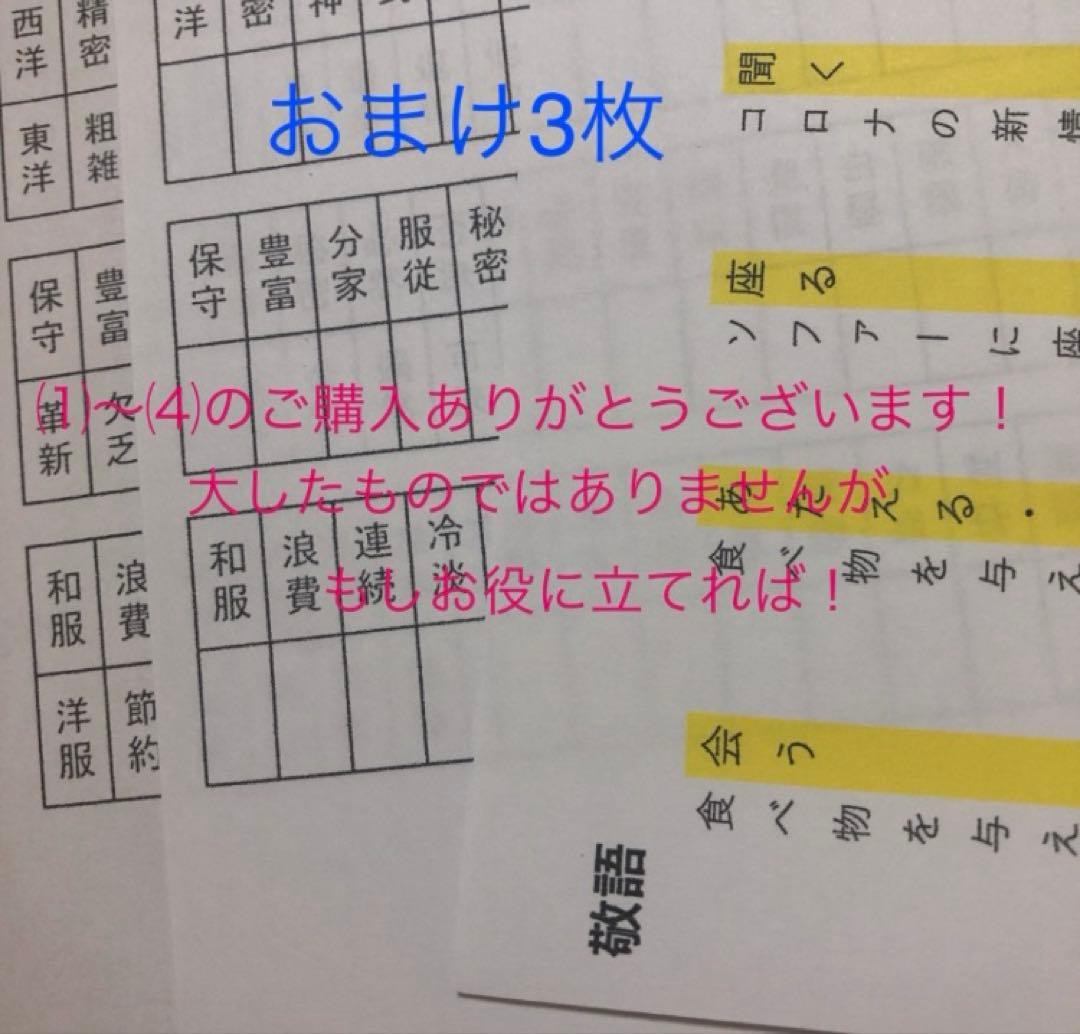 おまけ3枚
⑴〜⑷のご購入ありがとうございます！
大したものではありませんが
もしお役に立てれば！
西洋 精密
東洋 粗雑
保守 豊富
革新 欠乏
和服 浪費
洋服 節約
洋 密 神
保守 豊富 分家 服従 秘密
和服 浪費 連続 冷淡
聞く
コロナの新情
座る
ソファーに座
あたえる・
食べ物を与え
会う
食べ物を与え
敬語